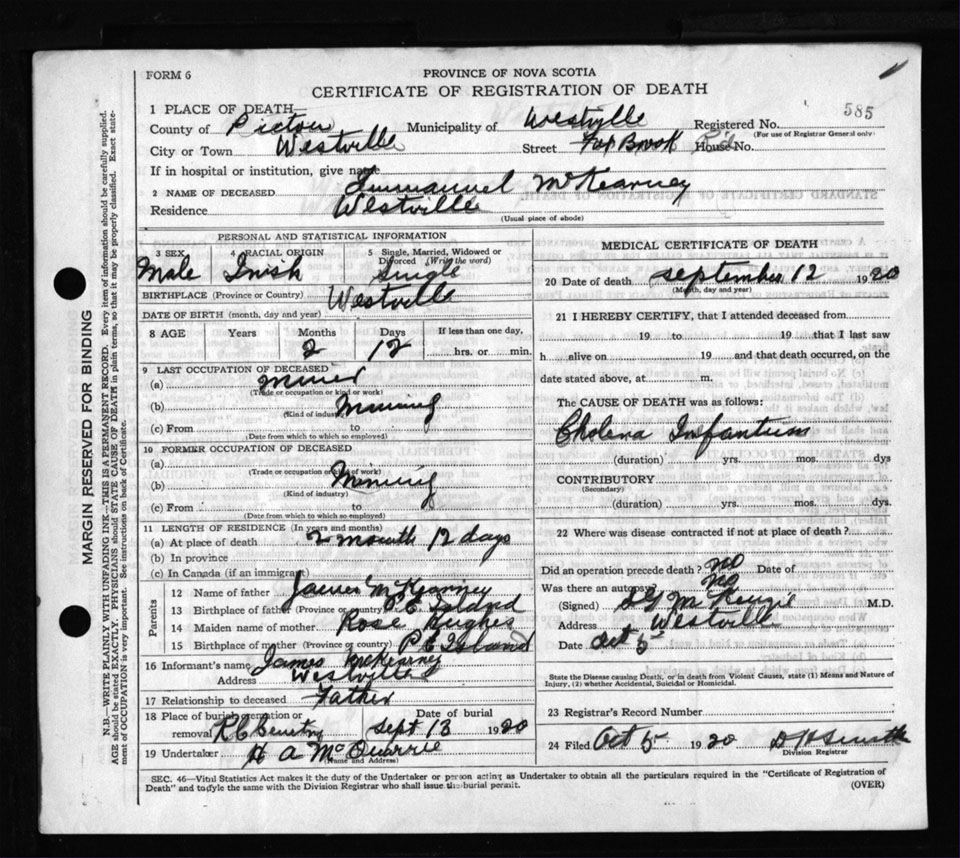 FORM 6
PROVINCE OF NOVA SCOTIA
CERTIFICATE OF REGISTRATION OF DEATH
585
1 PLACE OF DEATH—
County of Pictou Municipality of Westville Registered No.
(For use of Registrar General only)
City or Town Westville Street Fox Brook Rd House No.
If in hospital or institution, give name
2 NAME OF DECEASED Immanuel McKearney
Residence Westville
(Usual place of abode)
PERSONAL AND STATISTICAL INFORMATION
3 SEX 4 RACIAL ORIGIN 5 Single, Married, Widowed or Divorced (Write the word)
Male Irish Single
BIRTHPLACE (Province or Country) Westville
DATE OF BIRTH (month, day and year)
8 AGE Years Months Days If less than one day,
2 12 hrs. or min.
9 LAST OCCUPATION OF DECEASED
(a) Miner
(Trade or occupation or kind of work)
(b) Mining
(Kind of industry)
(c) From to
(Date from which to which so employed)
10 FORMER OCCUPATION OF DECEASED
(a)
(Trade or occupation or kind of work)
(b) Mining
(Kind of industry)
(c) From to
(Date from which to which so employed)
11 LENGTH OF RESIDENCE (In years and months)
(a) At place of death 2 month 12 days
(b) In province
(c) In Canada (if an immigrant)
Parents
12 Name of father James McKearney
13 Birthplace of father (Province or country) P. E. Island
14 Maiden name of mother Rose Hughes
15 Birthplace of mother (Province or country) P E Island
16 Informant's name James McKearney
Address Westville
17 Relationship to deceased Father
18 Place of burial, cremation or removal R C Cemetry Date of burial Sept 13 1920
19 Undertaker H A McQuarrie
(Name and Address)
MEDICAL CERTIFICATE OF DEATH
20 Date of death September 12 1920
(Month, day and year)
21 I HEREBY CERTIFY, that I attended deceased from
19 to 19 that I last saw
h alive on 19 and that death occurred, on the
date stated above, at m.
The CAUSE OF DEATH was as follows:
Cholera Infantum
(duration) yrs. mos. dys
CONTRIBUTORY
(Secondary)
(duration) yrs. mos. dys.
22 Where was disease contracted if not at place of death?
Did an operation precede death? no Date of
Was there an autopsy? no
(Signed) McKenzie M.D.
Address Westville
Date Oct 5
State the Disease causing Death, or in death from Violent Causes, state (1) Means and Nature of
Injury, (2) whether Accidental, Suicidal or Homicidal.
23 Registrar's Record Number
24 Filed Oct 5 1920 D H Smith
Division Registrar
SEC. 46—Vital Statistics Act makes it the duty of the Undertaker or person acting as Undertaker to obtain all the particulars required in the "Certificate of Registration of
Death" and to file the same with the Division Registrar who shall issue the burial permit. (OVER)
MARGIN RESERVED FOR BINDING
N.B.—WRITE PLAINLY WITH UNFADING INK—THIS IS A PERMANENT RECORD. Every item of information should be carefully supplied.
AGE should be stated EXACTLY. PHYSICIANS should STATE CAUSE OF DEATH in plain terms, so that it may be properly classified. Exact statement of OCCUPATION is very important. See instructions on back of Certificate.